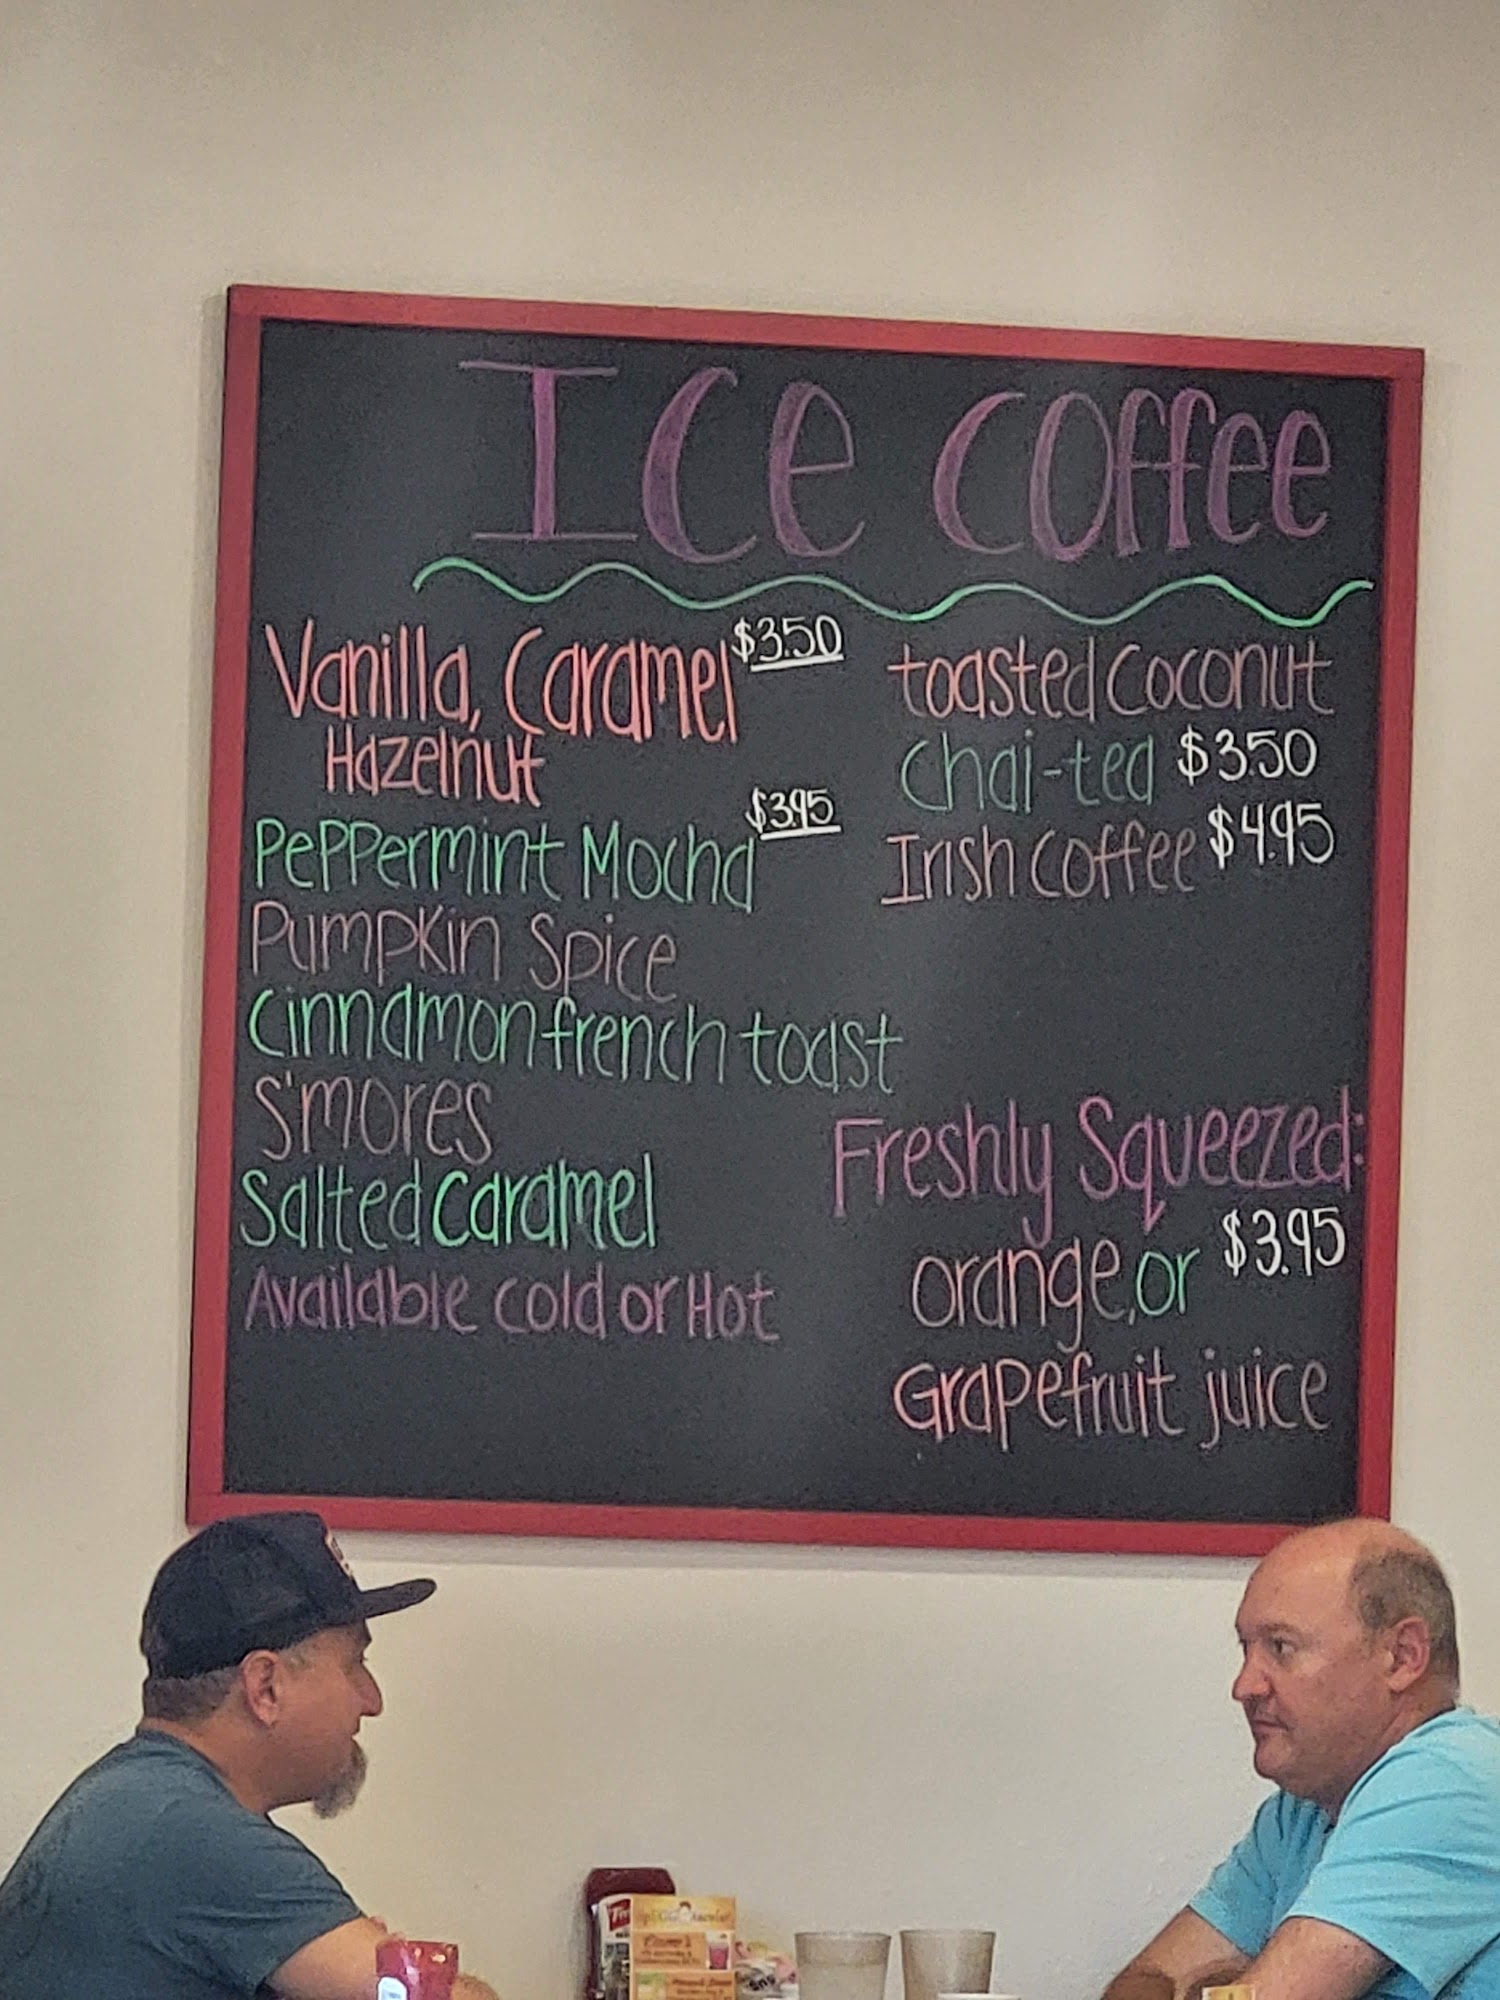 Ice Coffee
Vanilla, Caramel $3.50
Hazelnut
Peppermint Mocha $3.95
Pumpkin Spice
Cinnamon french toast
S'mores
Salted Caramel
Available Cold or Hot
toasted Coconut
Chai-tea $3.50
Irish Coffee $4.95
Freshly Squeezed:
orange, or $3.95
Grapefruit juice